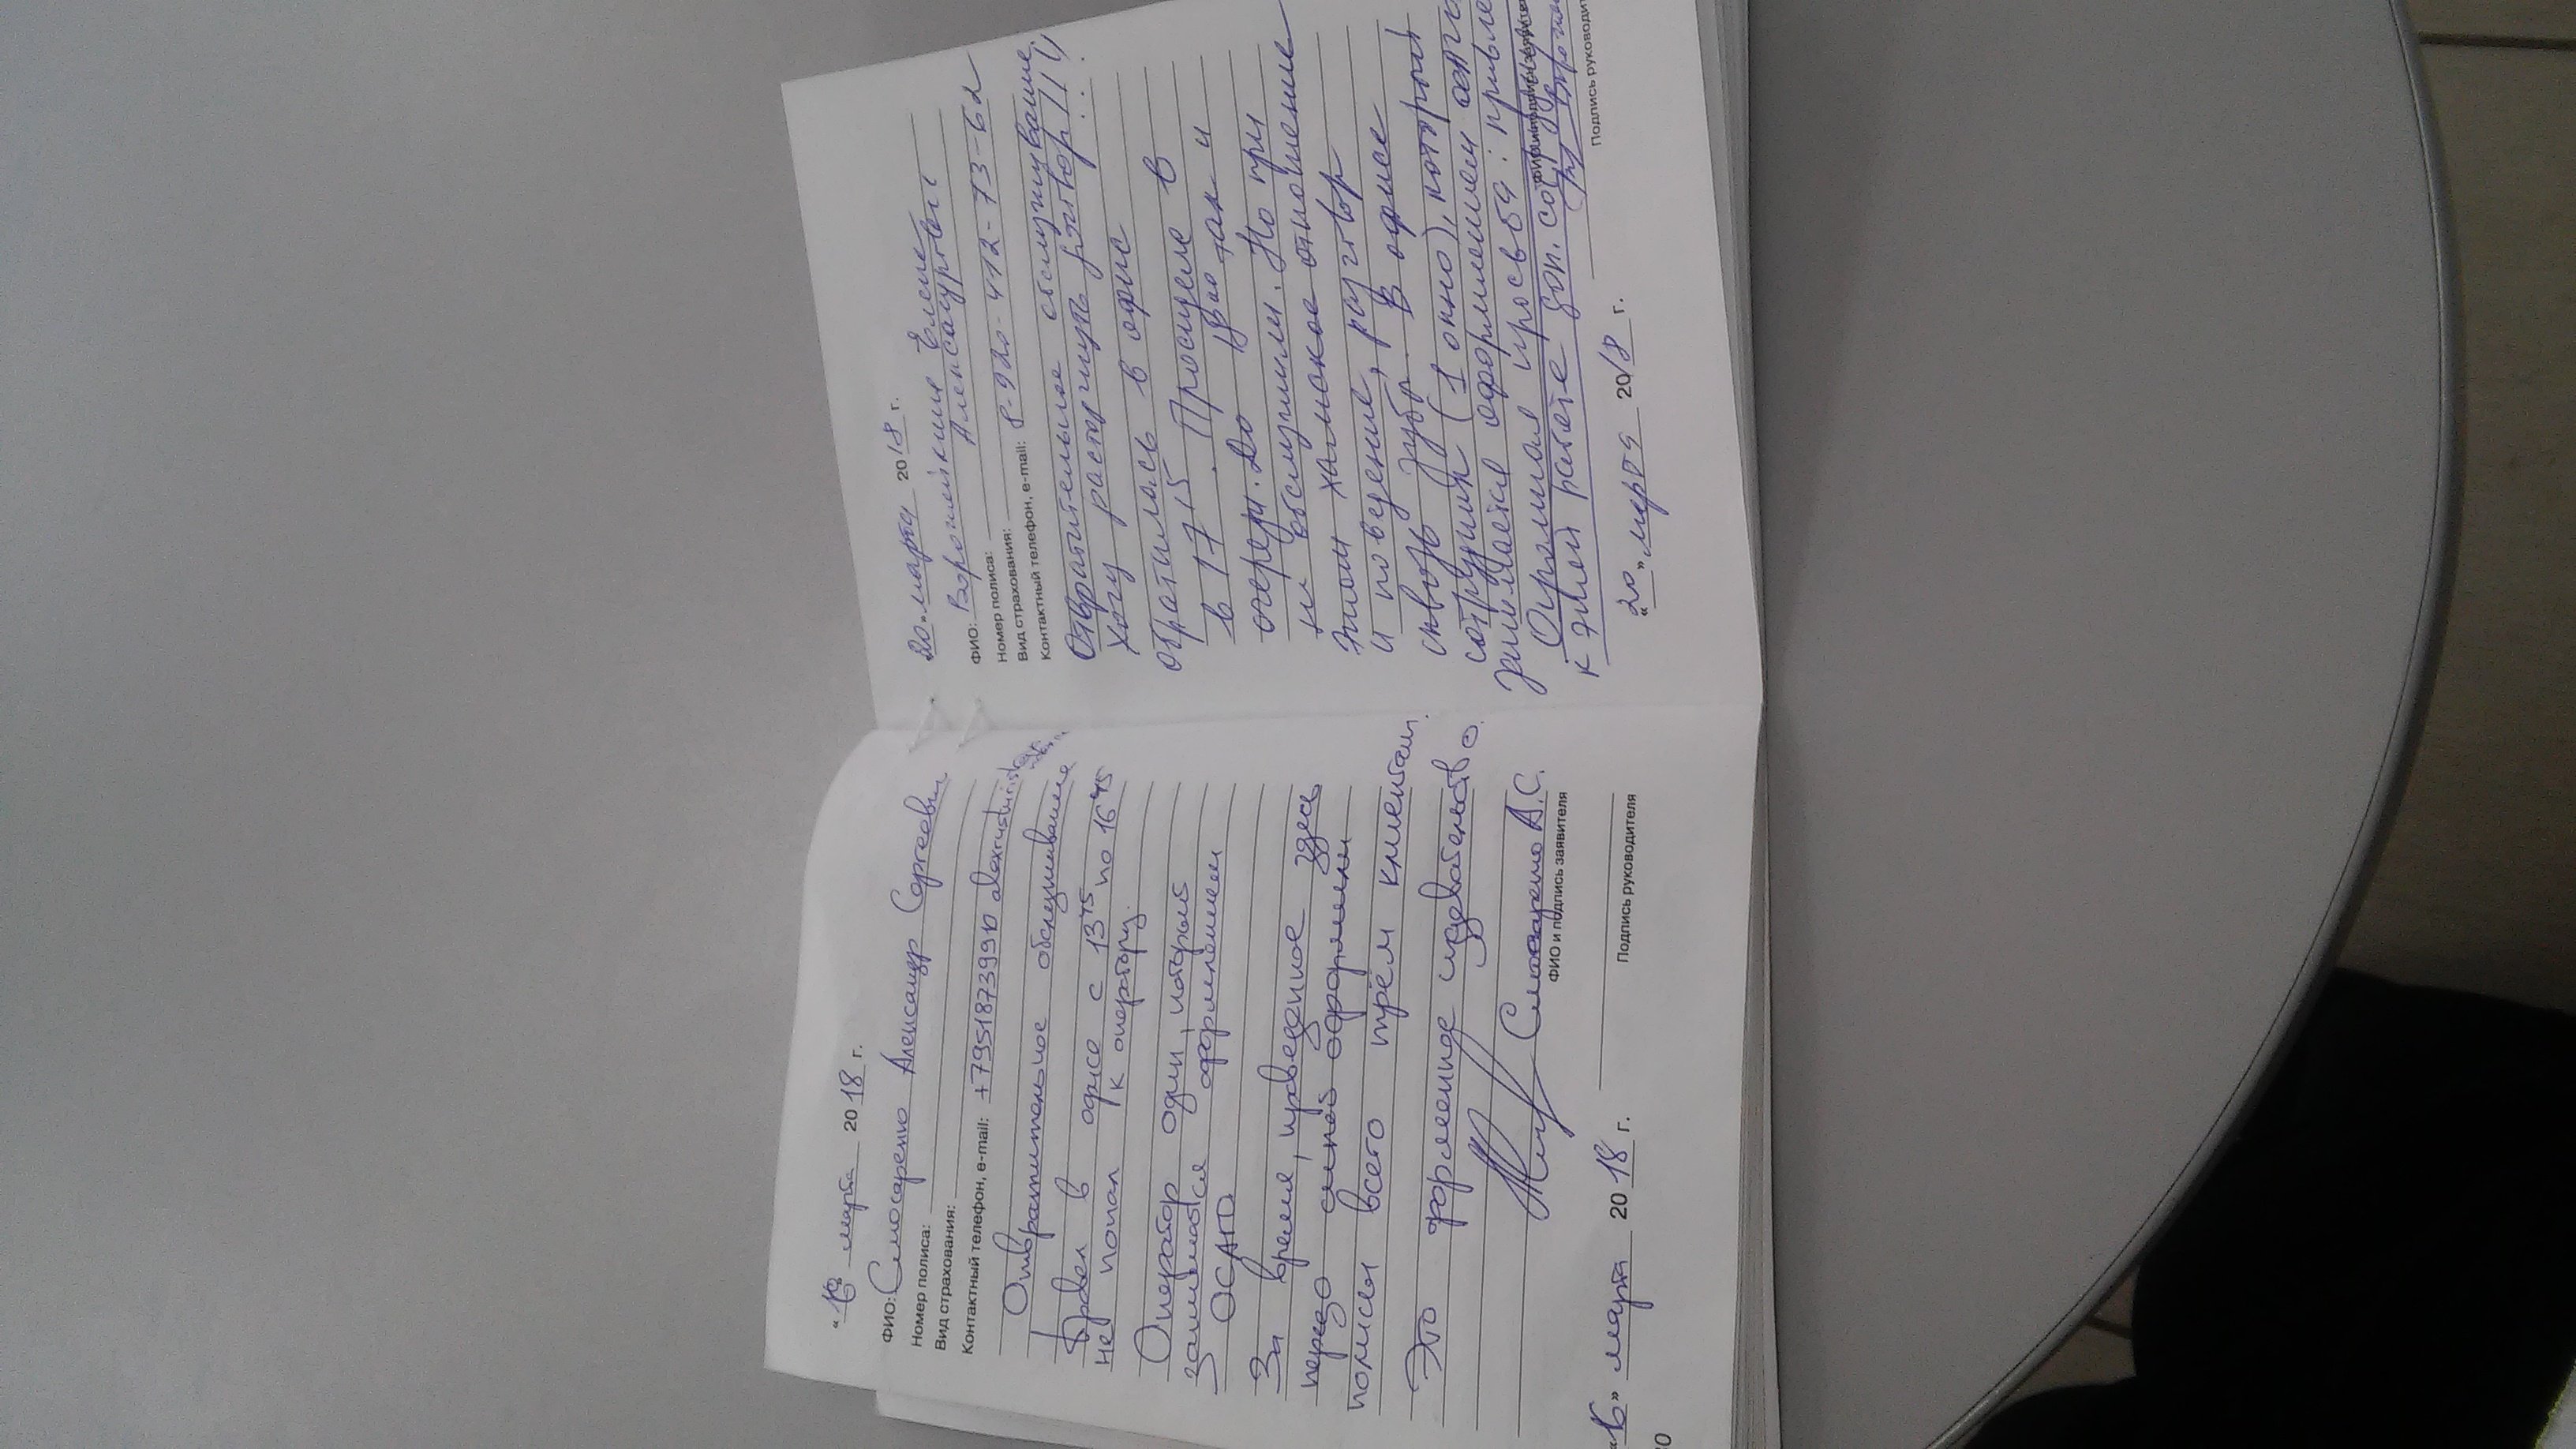 «16» марта 2018 г.
ФИО: Слюсаренко Александр Сергеевич
Номер полиса:
Вид страхования:
Контактный телефон, e-mail: +79518739910
Отвратительное обслуживание
Провел в офисе с 13 45 по 16 45
не попал к оператору.
Оператор один, который
занимается оформлением
ОСАГО
За время, проведенное здесь
передо мной оформили
полисы всего трём клиентам.
Это форменное издевательство
Слюсаренко А.С.
ФИО и подпись заявителя
«16» марта 2018 г.
Подпись руководителя
20
«20» марта 2018 г.
ФИО: Елене
Александровна
Номер полиса:
Вид страхования:
Контактный телефон, e-mail: 8-920-412-73-62
Отвратительное обслуживание.
Хочу расторгнуть договор!!!
обратилась в офис
в 17 15. Просидела в
очереди. До так и
не обслужили. Но при
этом хамское отношение
и поведение, разговор
сквозь зубы. В офисе
сотрудник (1 окно), который
занимается оформлением
Огромная просьба:
к этой работе доп. сотрудн
«20» марта 2018 г.
Подпись руководит